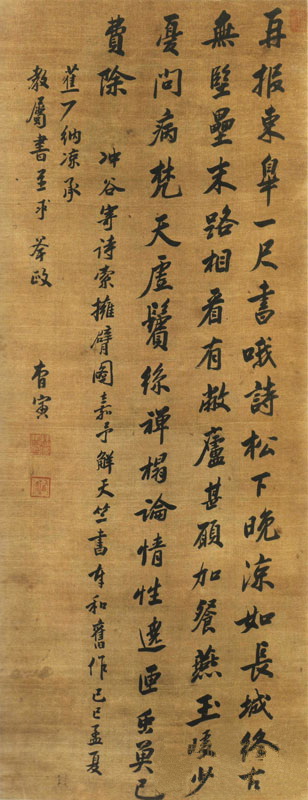 再報東皐一尺書哦詩松下晚凉如長城終古
無堅壘末路相看有敝廬甚願加餐燕玉暖少
憂問病梵天虛鬢絲禪榻論情性匝已
費除
冲谷寄詩索擁臂圖嘉予解天竺書和舊作己巳孟夏
蕉下納凉承
教屬書呈求斧政
曹寅